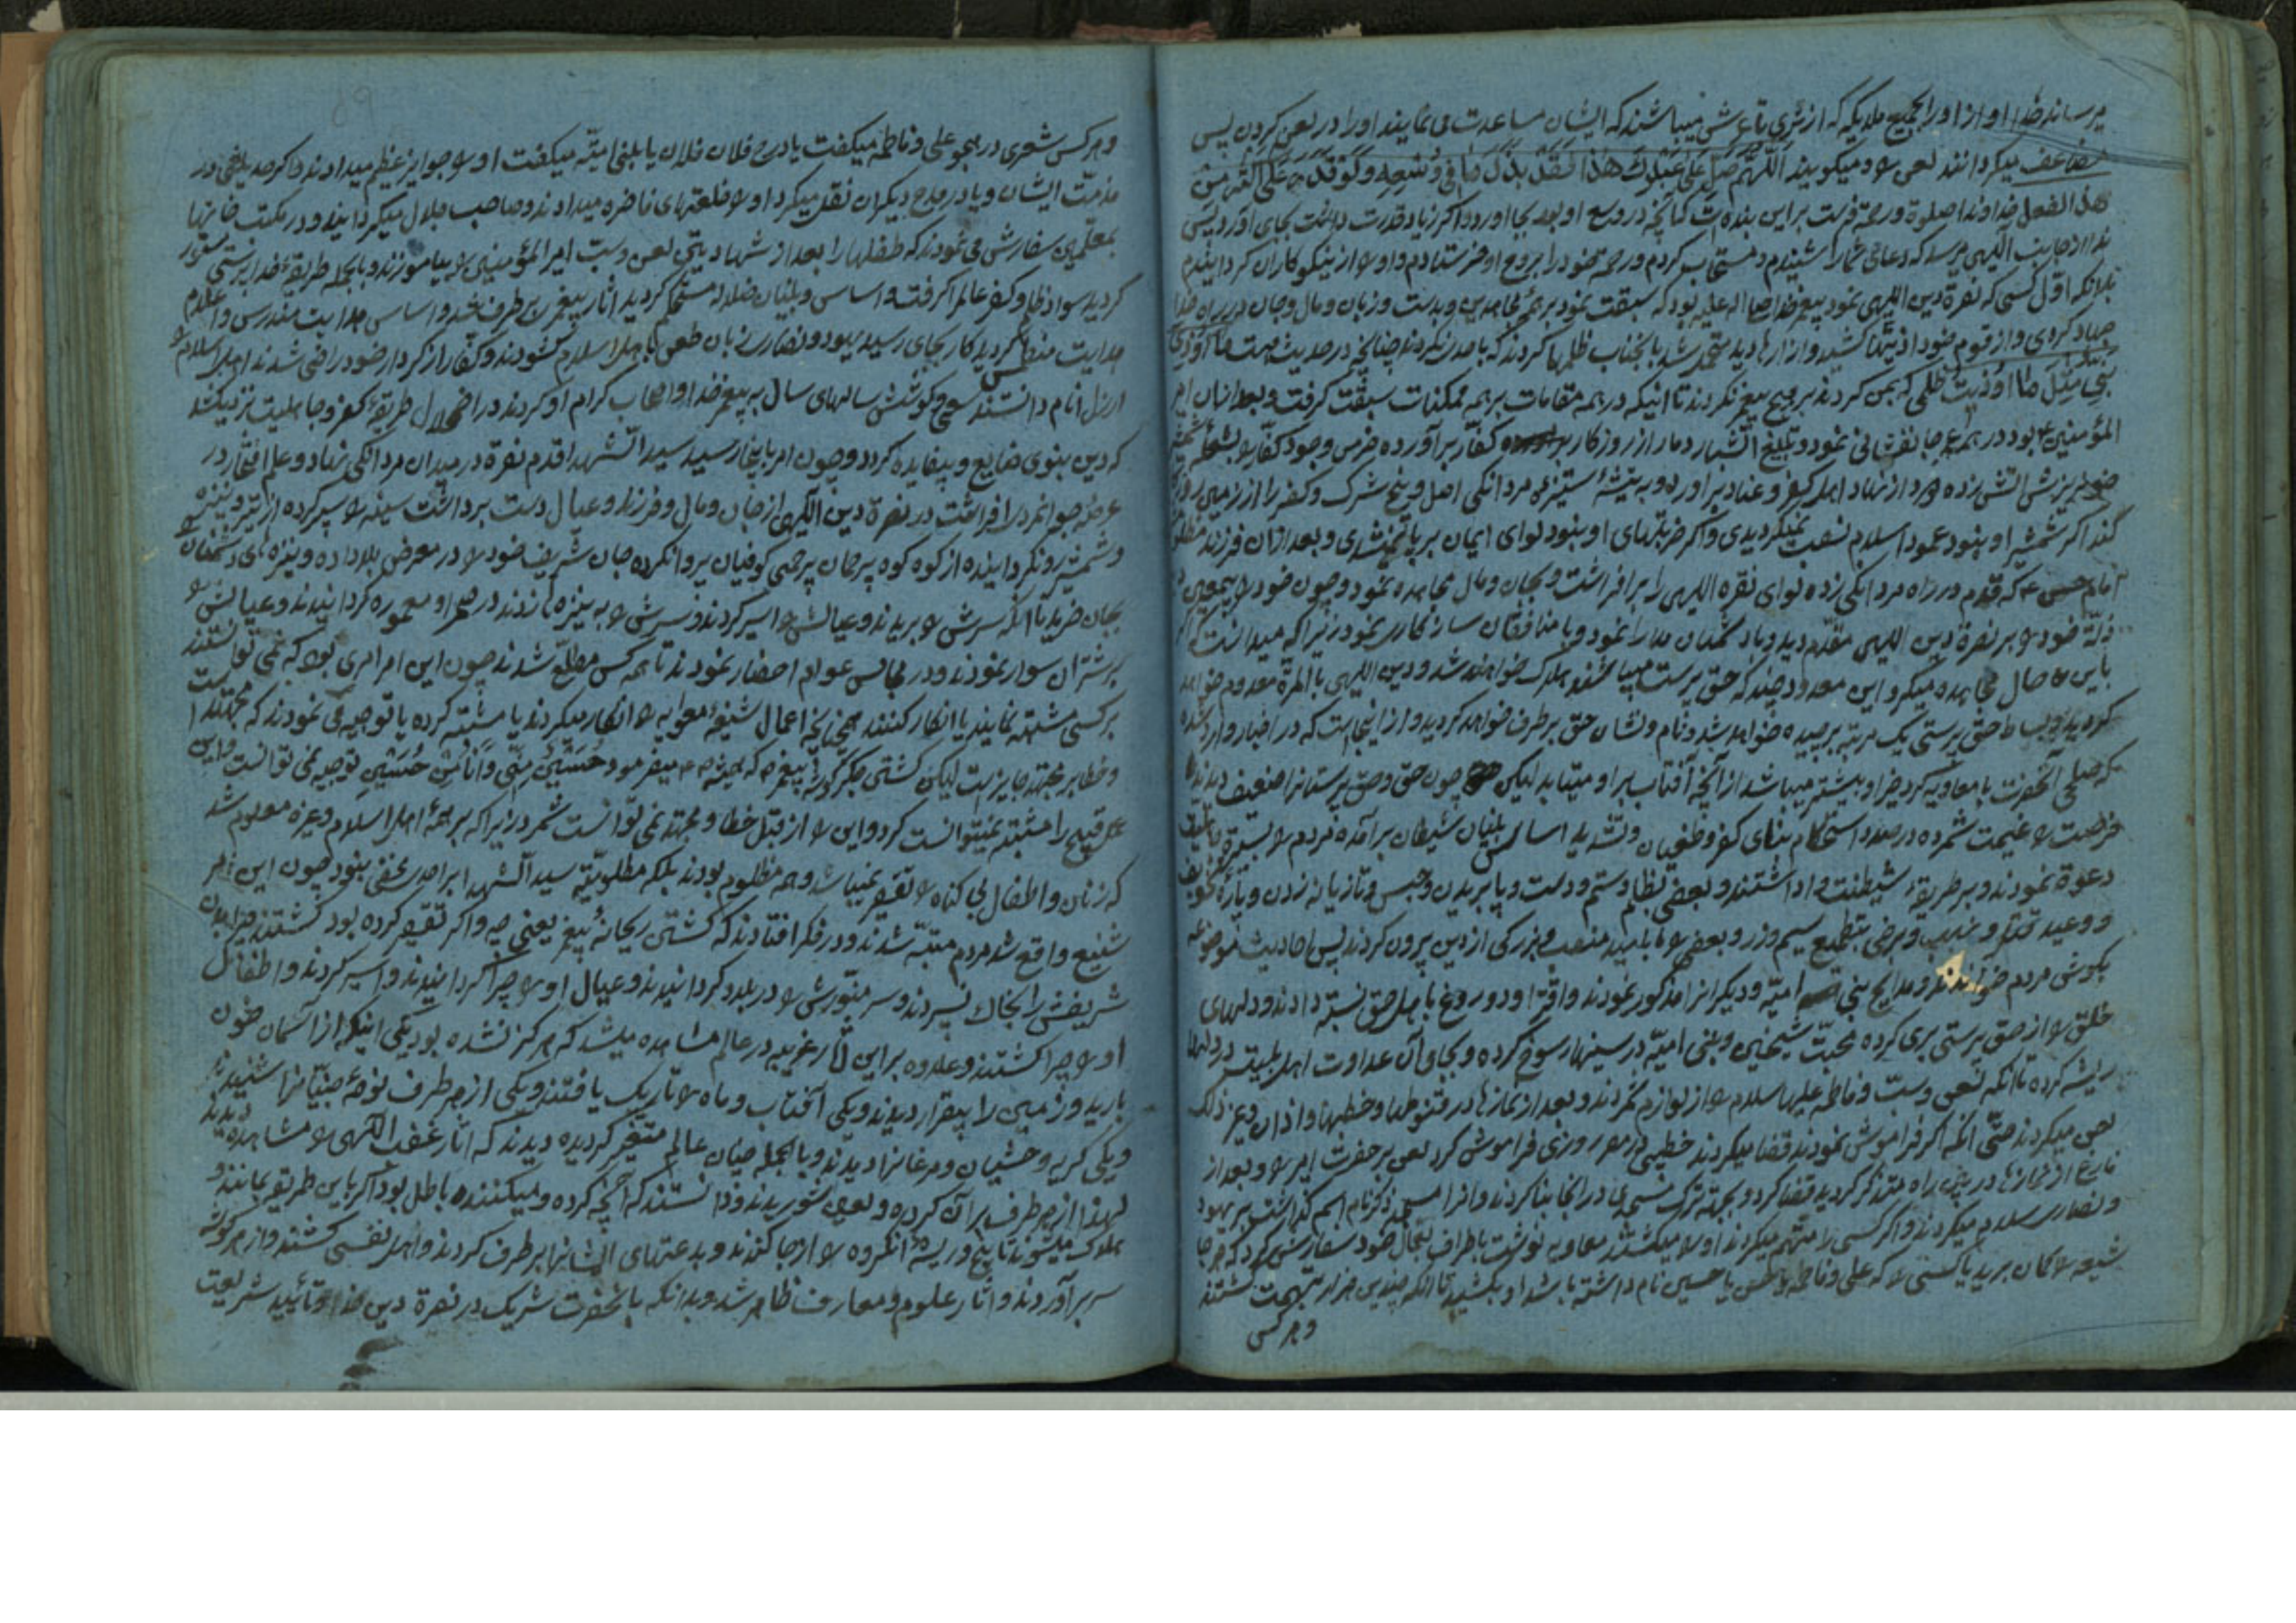 میرساند خدا او از او را بجمیع ملایکه که از ثری تا عرش میباشند که ایشان مساعدت می نمایند او را در لعن کردن پس
مضاعف میکردانند لعن او و میکویند اللهم صل علی عبدک هذا لقد بذل ما فی وسعه و لو قدر علی اکثر من
هذا لفعل خداوندا صلوة و رحمة فرست بر این بنده ات که آنچه در وسع او بود بجا اورد و اکر زیاد قدرت داشت بجای اوردی پس
ندا از جانب الهی میرسد که دعای شما را شنیدم و مستجاب کردم و رحمة خود را بروح او فرستادم و او را از نیکوکاران کردانیدم
بدانکه اول کسی که نصرة دین الهی نمود پیغمبر خدا صلی الله علیه بود که سبقت نمود بر همه مجاهدین و بدست و زبان و مال و جان در راه خدا
جهاد کردی و از قوم خود اذیتها کشید و ازارها دید متحمل شد بانجناب ظلمها کردند که باحدی نکردند چنانچه در حدیث است ما اوذی
نبی مثل ما اوذیت ظلمی که بمن کردند بر هیچ پیغمبر نکردند تا اینکه در همه مقامات بر همه ممکنات سبقت کرفت و بعد از ان امیر
المؤمنین ع بود در همه جا جانفشانی نمود و تیغ آتشبار دمار از روزکار کفار برآورده خرمن وجود کفار را بشعله شمشیر
خونریزش آتش زده و دود از نهاد اهل کفر و عناد براورده و به تیشه ستیزه مردانکی اصل و بیخ شرک و کفر را از زمین روزکار
کند اکر شمشیر او نبود عمود اسلام نصب نمیکردیدی و اکر ضربتهای او نبود لوای ایمان بر پا نمیشدی و بعد از ان فرزند مظلومش
امام حسن ع که قدم در راه مردانکی زده لوای نصرة الهی را برافراشت و بجان و مال مجاهده نمود و چون خود را بیمعین دید
ذلة خود را بر نصرة دین الهی مقدم دید و با دشمنان مدارا نمود و با منافقان سازکاری نمود زیرا که میدانست که اکر
باین حال مجاهده میکرد این معدود چند که حق پرست میباشند هلاک خواهند شد و دین الهی بالمرة معدوم خواهد
کردید و بساط حق پرستی یک مرتبه برچیده خواهد شد و نام و نشان حق برطرف خواهد کردید و از اینجاست که در اخبار وارد شده
که صلحی آنحضرت با معاویه کرد خیر او بیشتر میباشد از آنچه آفتاب بر او میتابد لیکن چون حق و حق پرستان را ضعیف دیدند
فرصت را غنیمت شمرده در صدد استحکام بنای کفر و طغیان و تشدید اساس بنیان شیطان برآمده مردم را بتدریج
دعوة نمودند و بر طریقه شیطنت واداشتند و بعضی بظلم و ستم و دست و پا بریدن و حبس و تازیانه زدن و پارۀ بتخویف
و وعید قتل و نهب و برخی بتطمیع سیم و زر و بعضی را بامید منصب و بزرکی از دین بیرون کردند پس احادیث موضوعه
بکوش مردم خواندند و مدایح بنی امیه و دیکران را مذکور نمودند و افترا و دروغ باهل حق نسبت دادند و دلهای
خلق را از حق پرستی بری کرده محبت شیخین و بنی امیه در سینها رسوخ کرده و بجای آن عداوت اهل بیت در دلها
ریشه کرده تا انکه لعن و سب و فاطمه علیها سلام را از لوازم کردند و بعد از نمازها در قنوطها و خطبها و اذان و غیر ذلک
لعن میکردند حتی انکه اکر فراموش نمودند قضا میکردند خطیبی در مصر روزی فراموش کرد لعن بر حضرت امیر را و بعد از
فارغ از نمازها در بین راه متذکر کردید قضا کرد و بجهة تبرک مسجدی در انجا بنا کردند و انرا مسجد ذکر نام اسم کذاشتند بر یهود
و نصاری سلام میکردند و اکر کسی را متهم میکردند او را میکشتند معاویه نوشت باطراف بعمال خود سفارش کرد که هر جا
شیعه را کمان برید یا کسی را که علی و فاطمه یا حسن یا حسین نام داشته باشد او بکشید تا انکه چندین هزار بتهمت کشتند
و هر کسی
و هر کس شعری در هجو علی و فاطمه میکفت یا در مدح فلان فلان یا بنی امیه میکفت او را جوایز عظیم میدادند و اکر حدیثی در
مذمت ایشان و یا در مدح دیکران نقل میکرد او را خلعتهای فاخره میدادند و صاحب جلال میکردانیدند و در مکتب خانها
بمعلمین سفارش می نمودند که طفلها را بعد از شهادتین لعن و سب امیر المؤمنین را بیاموزند و بالجمله طریقه خدا پرستی مستور
کردید سواد ظلم و کفر عالم را کرفت و اساس و بنیان ضلاله مستحکم کردید آثار پیغمبر برطرف شد و اساس هدایت مندرس و اعلام
هدایت منطمس کردید کار بجای رسید یهود و نصاری زبان طعن باهل اسلام کشودند و کفار از کردار خود راضی شدند اهل اسلام را
ارذل انام دانستند سعی و کوشش سالهای سال به پیغمبر خدا و اصحاب کرام او کردند در اضمحلال طریقه کفر و جاهلیت نزدیک شد
که دین نبوی ضایع و بیفایده کردد و چون امر باینجا رسید سید الشهدا قدم نصرة در میدان مردانکی نهاد و علم افتخار در
عرصه جوانمردی افراشت در نصرة دین الهی از جان و مال و فرزند و عیال دست برداشت سینه را سپر کرده از تیر و نیزه
و شمشیر رو نکردانیده از کوه کوه پرجان پرچمی کوفیان پروا نکرده جان شریف خود را در معرض بلا داده و نیزه های دشمنان را
بجان خرید تا آنکه سرش را بریدند و عیالش را اسیر کردند و سرش را به نیزه زدند در صحرا و معموره کردانیدند و عیالش را
بر شتران سوار نمودند و در مجالس عوام احضار نمودند تا همه کس مطلع شدند چون این امر امری بود که نمی توانستند
بر کسی مشتبه نمایند یا انکار کنند همچنانچه اعمال شنیعه معویه را انکار میکردند یا مشتبه کرده یا توجیه می نمودند که مجتهد است
و خطا بر مجتهد جایز است لیکن کشتن جکر کوشه پیغمبر ص که همیشه میفرمود حسین منی و انا من حسین توجیه نمی توانست و این
عمل قبیح را مشتبه نمیتوانست کرد و این را از قبل خطا و مجتهد نمی توانست شمرد زیرا که بر همه اهل اسلام و غیره معلوم شد
که زنان و اطفال بی کناه را تقصیر نمیباشد و همه مظلوم بودند بلکه مظلومیة سید الشهدا بر احدی مخفی نبود چون این امر
شنیع واقع شد مردم متنبه شدند و در فکر افتادند که کشتن ریحانه پیغمبر یعنی چه و اکر تقصیر کرده بود کشتند چرا بدن
شریفش را بخاک نسپردند و سر منورش را در بلاد کردانیدند و عیال او را چرا کردانیدند و اسیر کردند و اطفال
او را چرا کشتند و علاوه بر این آثار غریبه در عالم مشاهده میشد که هرکز نشده بود یکی اینکه از آسمان خون
بارید و زمین را بیقرار دیدند و یکی آفتاب و ماه را تاریک یافتند و یکی از هر طرف نوحه جنیان را شنیدند
و یکی کریه وحشیان و مرغان را دیدند و بالجمله جنان عالم متغیر کردیده دیدند که آثار غضب الهی را مشاهده دیدند
لهذا از هر طرف بر آن کروه و لعین بشوریدند و دانستند که آنچه کرده و میکننده باطل بود اکر باین طریقه بمانند
هلاک میشوند تا بیخ و ریشه انکروه را از جا کندند و بدعتهای ایشان را برطرف کردند و اهل نفسی کشتند و از هر کوشه
سر برآوردند و آثار علوم و معارف ظاهر شد و بدانکه با نحضرت شریک در نصرة دین خدا و تأیید شریعت